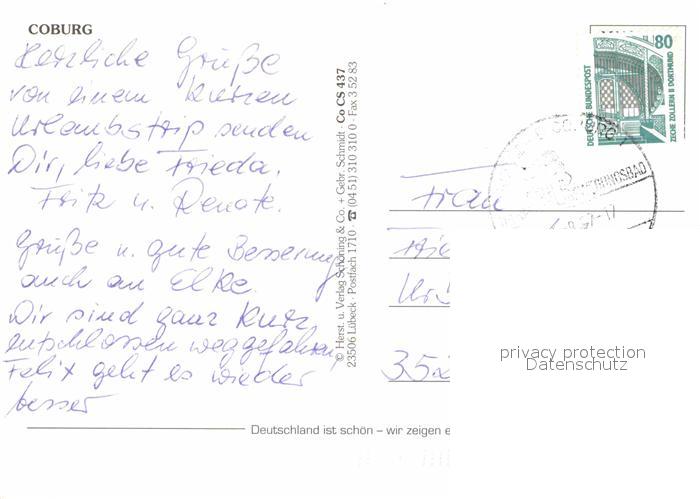 COBURG
Herzliche Grüße
von einem kurzen
Urlaubstrip senden
Dir, liebe Frieda,
Fritz u. Renate.
Grüße u. gute Besserung
auch an Elke.
Wir sind ganz kurz
entschlossen weggefahren,
Felix geht es wieder
besser
© Herst. u. Verlag Schöning & Co. + Gebr. Schmidt · Co CS 437
23506 Lübeck · Postfach 1710 · ☎ (04 51) 310 310 0 · Fax 3 52 83
80
DEUTSCHE BUNDESPOST
ZECHE ZOLLERN II DORTMUND
Frau
352
privacy protection
Datenschutz
Deutschland ist schön – wir zeigen e